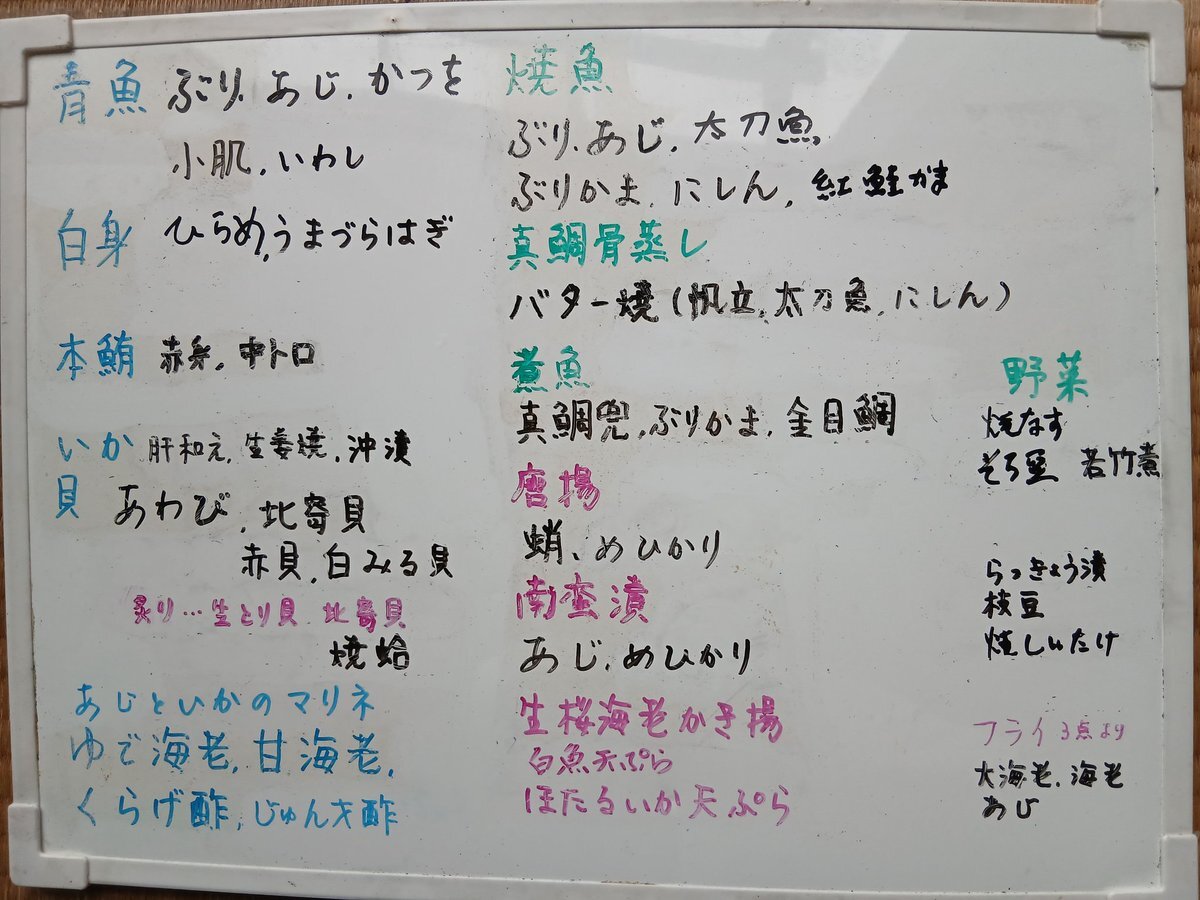 青魚 ぶり、あじ、かつを
小肌、いわし
白身 ひらめ、うまづらはぎ
本鮪 赤身、中トロ
いか 肝和え、生姜焼、沖漬
貝 あわび、北寄貝
赤貝、白みる貝
炙り…生とり貝 北寄貝
焼蛤
あじといかのマリネ
ゆで海老、甘海老、
くらげ酢、じゅんさ酢
焼魚
ぶり、あじ、太刀魚
ぶりかま、にしん、紅鮭かま
真鯛骨蒸し
バター焼(帆立、太刀魚、にしん)
煮魚
真鯛兜、ぶりかま、金目鯛
唐揚
蛸、めひかり
南蛮漬
あじ、めひかり
生桜海老かき揚
白魚天ぷら
ほたるいか天ぷら
野菜
焼なす
そら豆 若竹煮
らっきょう漬
枝豆
焼しいたけ
フライ 3点より
大海老、海老
あじ